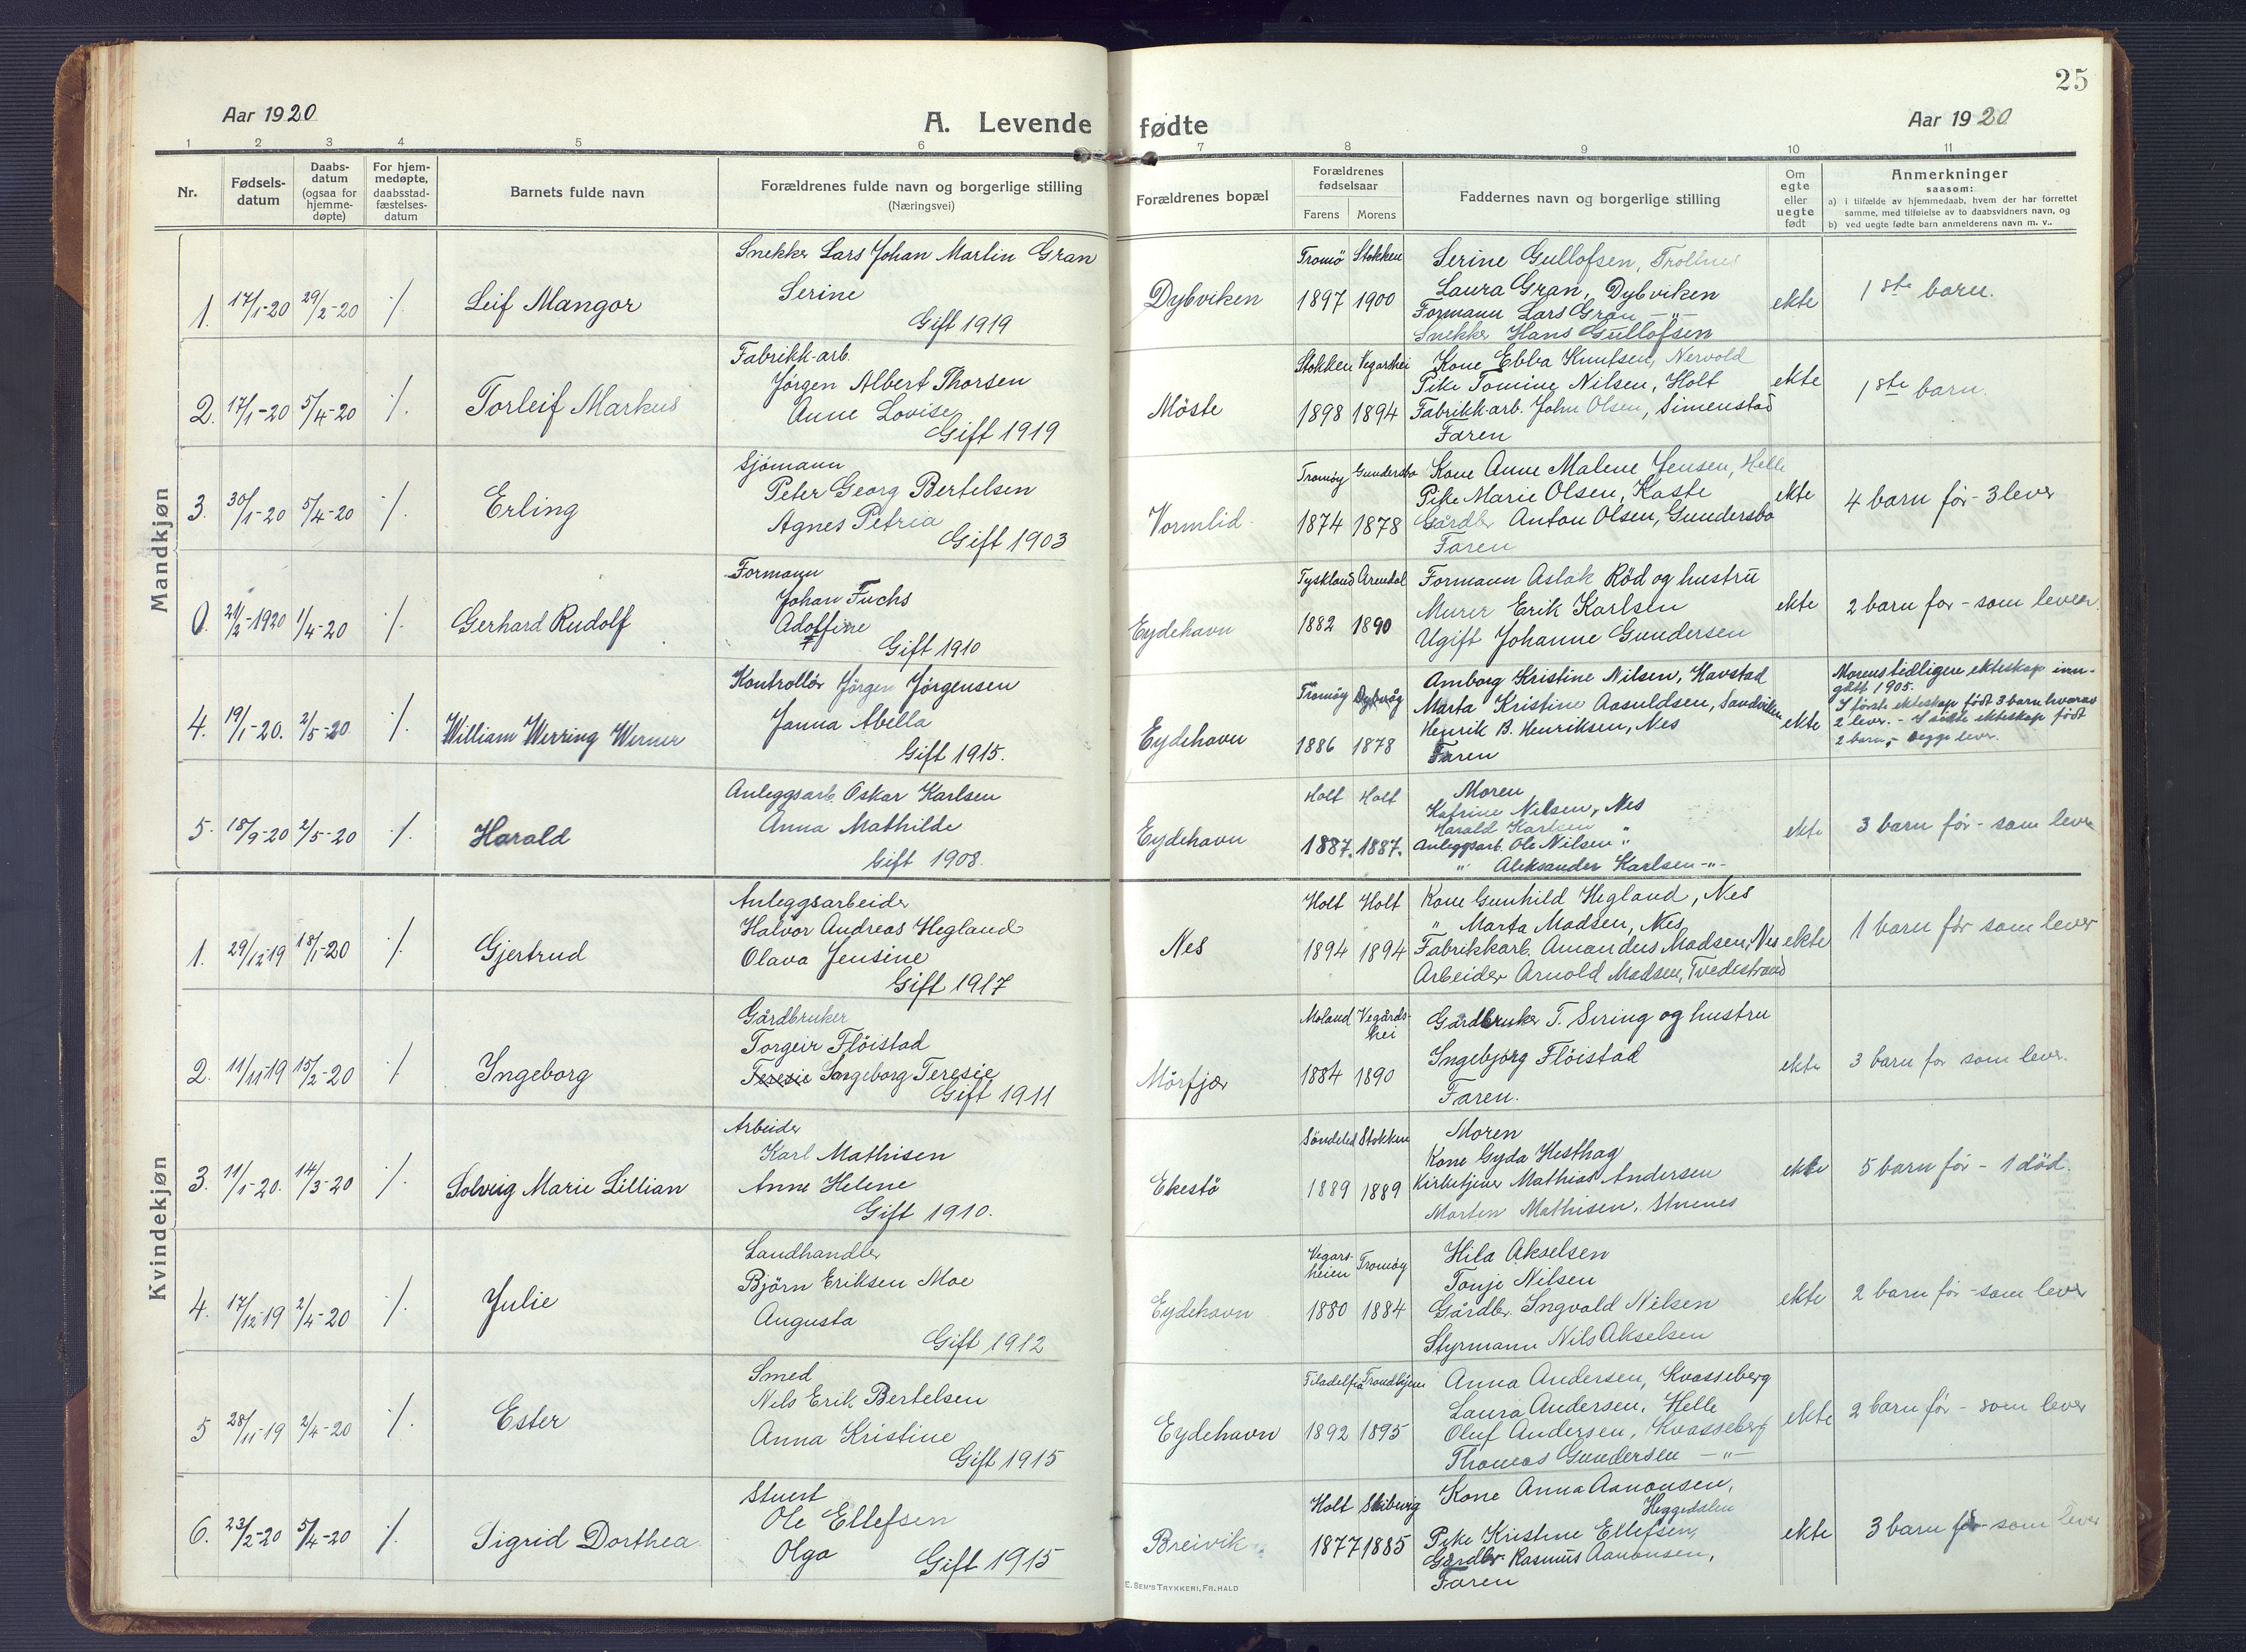 25
Aar 1920
A. Levende fødte
Aar 1920
1 2 3 4 5 6 7 8 9 10 11
Nr.
Fødsels-
datum
Daabs-
datum
(ogsaa for
hjemme-
døpte)
For hjem-
medøpte,
daabsstad-
fæstelses-
datum
Barnets fulde navn
Forældrenes fulde navn og borgerlige stilling
(Næringsvei)
Forældrenes bopæl
Forældrenes
fødselsaar
Farens Morens
Faddernes navn og borgerlige stilling
Om
egte
eller
uegte
født
Anmerkninger
saasom:
a) i tilfælde av hjemmedaab, hvem der har forrettet
samme, med tilføielse av to daabsvidners navn, og
b) ved uegte fødte barn anmelderens navn m. v..
Mandkjøn
1. 17/1-20 29/2-20 ·/· Leif Mangor
Snekker Lars Johan Martin Gran
Serine
Gift 1919
Dybviken
Tromö Stokken
1897 1900
Serine Gullofsen, Trollnes
Laura Gran, Dybviken
Formann Lars Gran -"-
Snekker Hans Gullofsen
ekte
1ste barn.
2. 17/1-20 5/4-20 ·/· Torleif Markus
Fabrikk-arb.
Jörgen Albert Thorsen
Anne Lovise
Gift 1919
Möste
Stokken Vegarshei
1898 1894
Kone Ebba Knutsen, Nervold
Pike Tomine Nilsen, Holt
Fabrikk-arb. John Olsen, Simenstad
Faren
ekte
1ste barn.
3. 30/1-20 5/4-20 ·/· Erling
Sjömann
Peter Georg Bertelsen
Agnes Petria
Gift 1903
Vormlid
Tromöy Gundersbo
1874 1878
Kone Anne Malene Jensen, Helle
Pike Marie Olsen, Kaste
Gårdbr Anton Olsen, Gundersbo
Faren
ekte
4 barn før - 3 lever
0. 21/2-1920 1/4-20 ·/· Gerhard Rudolf
Formann
Johan Fuchs
Adolfine
Gift 1910
Eydehavn
Tyskland Arendal
1882 1890
Formann Aslak Röd og hustru
Murer Erik Karlsen
Ugift Johanne Gundersen
ekte
2 barn før - som lever
4. 19/1-20. 2/5-20 ·/· William Werring Werner
Kontrollör Jörgen Jörgensen
Janna Abella
Gift 1915.
Eydehavn
Tromöy Dybvåg
1886 1878
Amborg Kristine Nilsen, Havstad
Marta Kristine Aasuldsen, Sandviken
Henrik B. Henriksen, Nes
Faren
ekte
Morens tidligere ekteskap inn-
gått 1905.
I første ekteskap født 3 barn hvorav
2 lever. - I siste ekteskap født
2 barn, - begge lever.
5. 18/9-20 2/5-20 ·/· Harald
Anleggsarb. Oskar Karlsen
Anna Mathilde
Gift 1908.
Eydehavn
Holt Holt
1887. 1887.
Moren
Katrine Nilsen, Nes
Harald Karlsen "
Anleggsarb. Ole Nilsen "
" Aleksander Karlsen -"-
ekte
3 barn før - som lever
Kvindekjøn
1. 29/12-19 18/1-20 ·/· Gjertrud
Anleggsarbeider
Halvor Andreas Hegland
Olava Jensine
Gift 1917
Nes
Holt Holt
1894 1894
Kone Gunhild Hegland, Nes
" Marta Madsen, Nes
Fabrikkarb. Amandus Madsen, Nes
Arbeider Arnold Madsen, Tvedestrand
ekte
1 barn før som lever
2. 11/11-19 15/2-20 ·/· Ingeborg
Gårdbruker
Torgeir Flöistad
Teresie Ingeborg Teresie
Gift 1911
Mörfjær
Moland Vegårds-
hei
1884 1890
Gårdbruker T. Sering og hustru
Ingebjörg Flöistad
Faren.
ekte
3 barn før som lever.
3. 11/1-20. 14/3-20 ·/· Solveig Marie Lillian
Arbeider
Karl Mathisen
Anne Helene
Gift 1910.
Ekestö
Söndeled Stokken
1889 1889
Moren
Kone Gyda Hesthag
Kirketjener Mathias Andersen
Morten Mathisen, Stuenes
ekte
5 barn før - 1 död.
4. 17/12-19 2/4-20 ·/· Julie
Landhandler
Björn Eriksen Moe
Augusta
Gift 1912
Eydehavn
Vegars-
heien Tromöy
1880 1884
Hila Akselsen
Tonje Nilsen
Gårdbr. Ingvald Nilsen
Styrmann Nils Akselsen
ekte
2 barn før - som lever
5 28/11-19 2/4-20 ·/· Ester
Smed
Nils Erik Bertelsen
Anna Kristine
Gift 1915
Eydehavn
Filadelfia Trondhjem
1892 1895
Anna Andersen, Kvasseberg
Laura Andersen, Helle
Oluf Andersen, Kvasseberg
Thomas Gundersen -"-
ekte
2 barn før - som lever
6. 23/2-20 5/4-20 ·/· Sigrid Dorthea
Stuert
Ole Ellefsen
Olga
Gift 1915
Breivik
Holt Skibevig
1877 1885
Kone Anna Aanonsen,
Heggedalen
Pike Kristine Ellefsen,
Gårdbr. Rasmus Aanonsen,
Faren
ekte
3 barn før - som lever
E. SEM'S TRYKKERI, FR.HALD